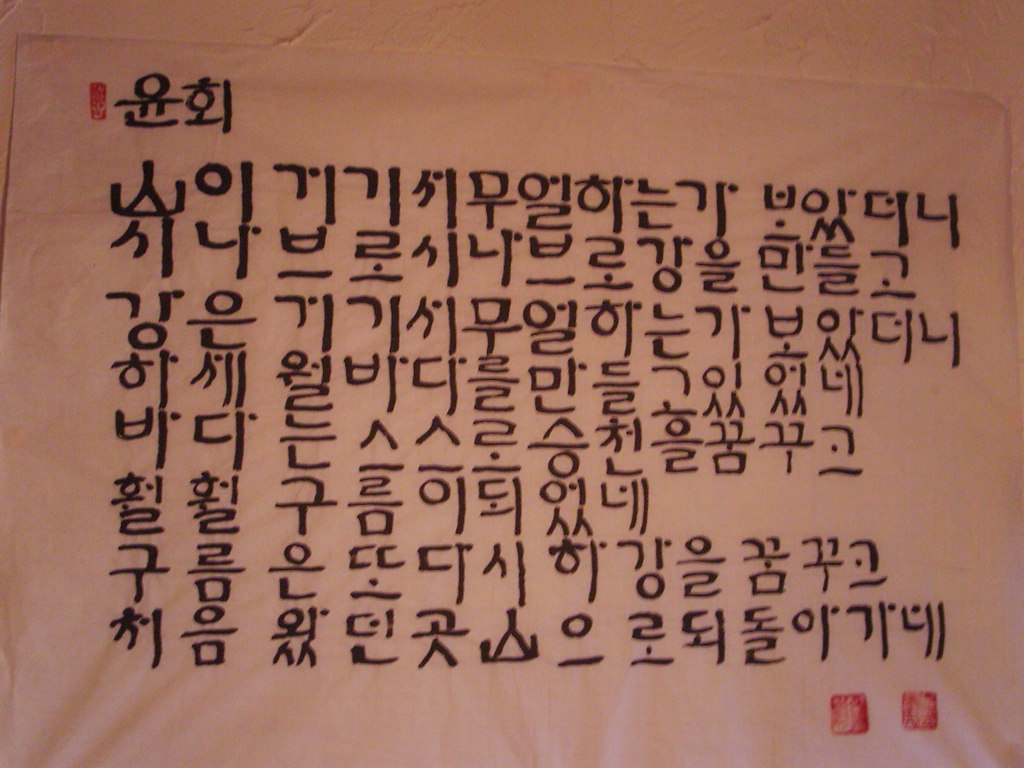 윤회
山이 거기서 무얼하는가 보았더니
시나브로 시나브로 강을 만들고
강은 거기서 무얼하는가 보았더니
하세월 바다를 만들고 있었네
바다는 스스로 승천을 꿈꾸고
훨훨 구름이 되었네
구름은 또다시 하강을 꿈꾸고
처음 왔던 곳 山으로 되돌아가네